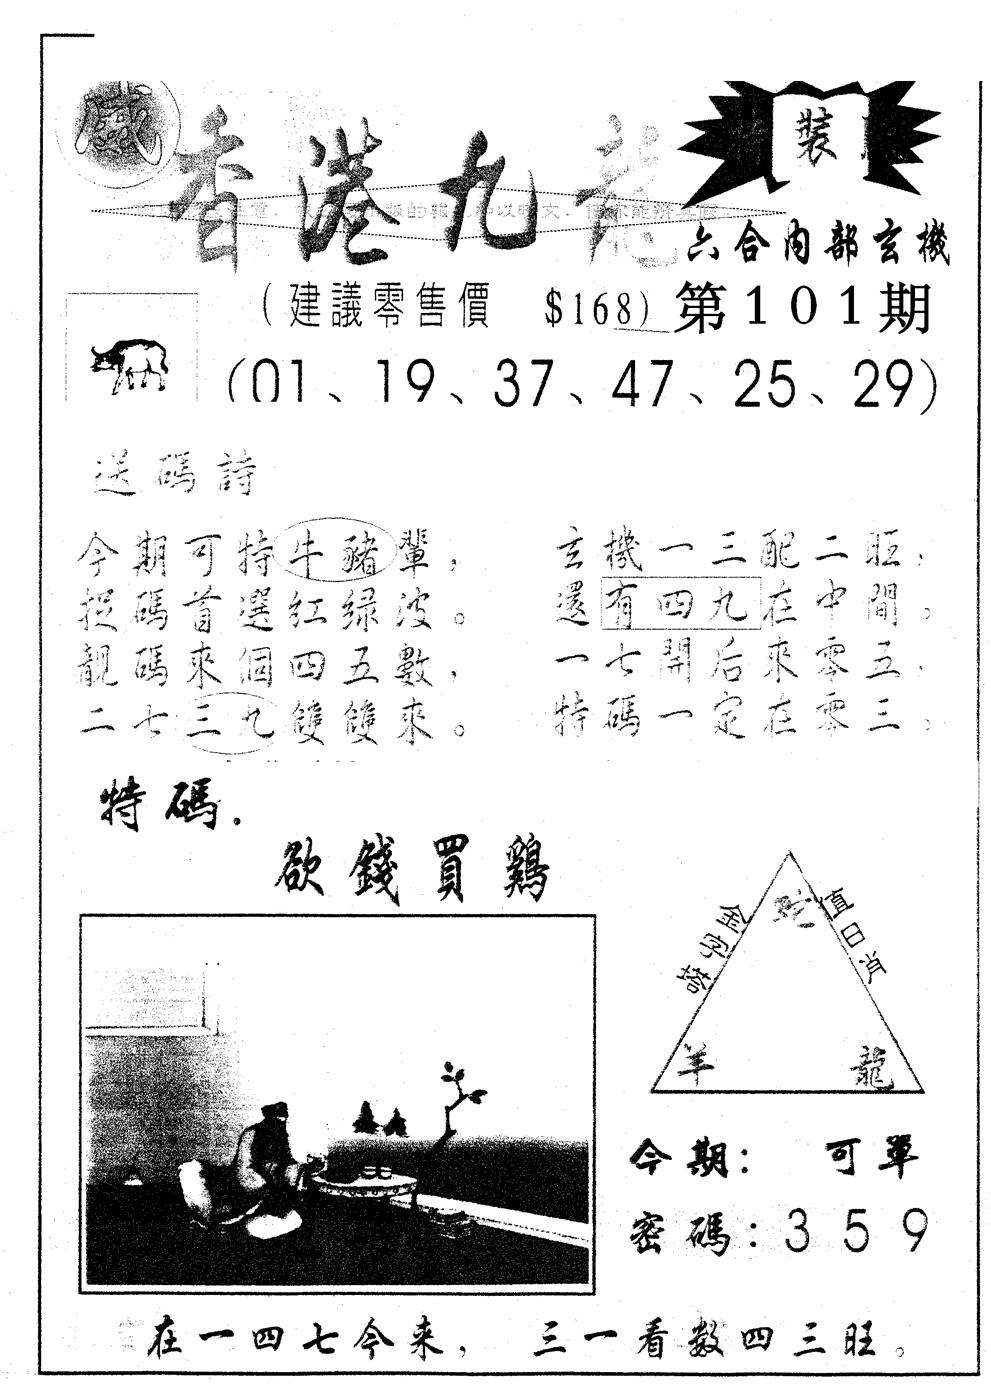 香港九龍
裝
六合內部玄機
(建議零售價 $168) 第101期
(01、19、37、47、25、29)
送碼詩
今期可特牛豬輩，
捉碼首選紅绿波。
靚碼來個四五數，
二七三九雙雙來。
玄機一三配二旺，
還有四九在中間。
一七開后來零五，
特碼一定在零三。
特碼.
欲錢買鷄
金字塔
值日肖
蛇
羊 龍
今期： 可單
密碼：359
在一四七今来， 三一看数四三旺。